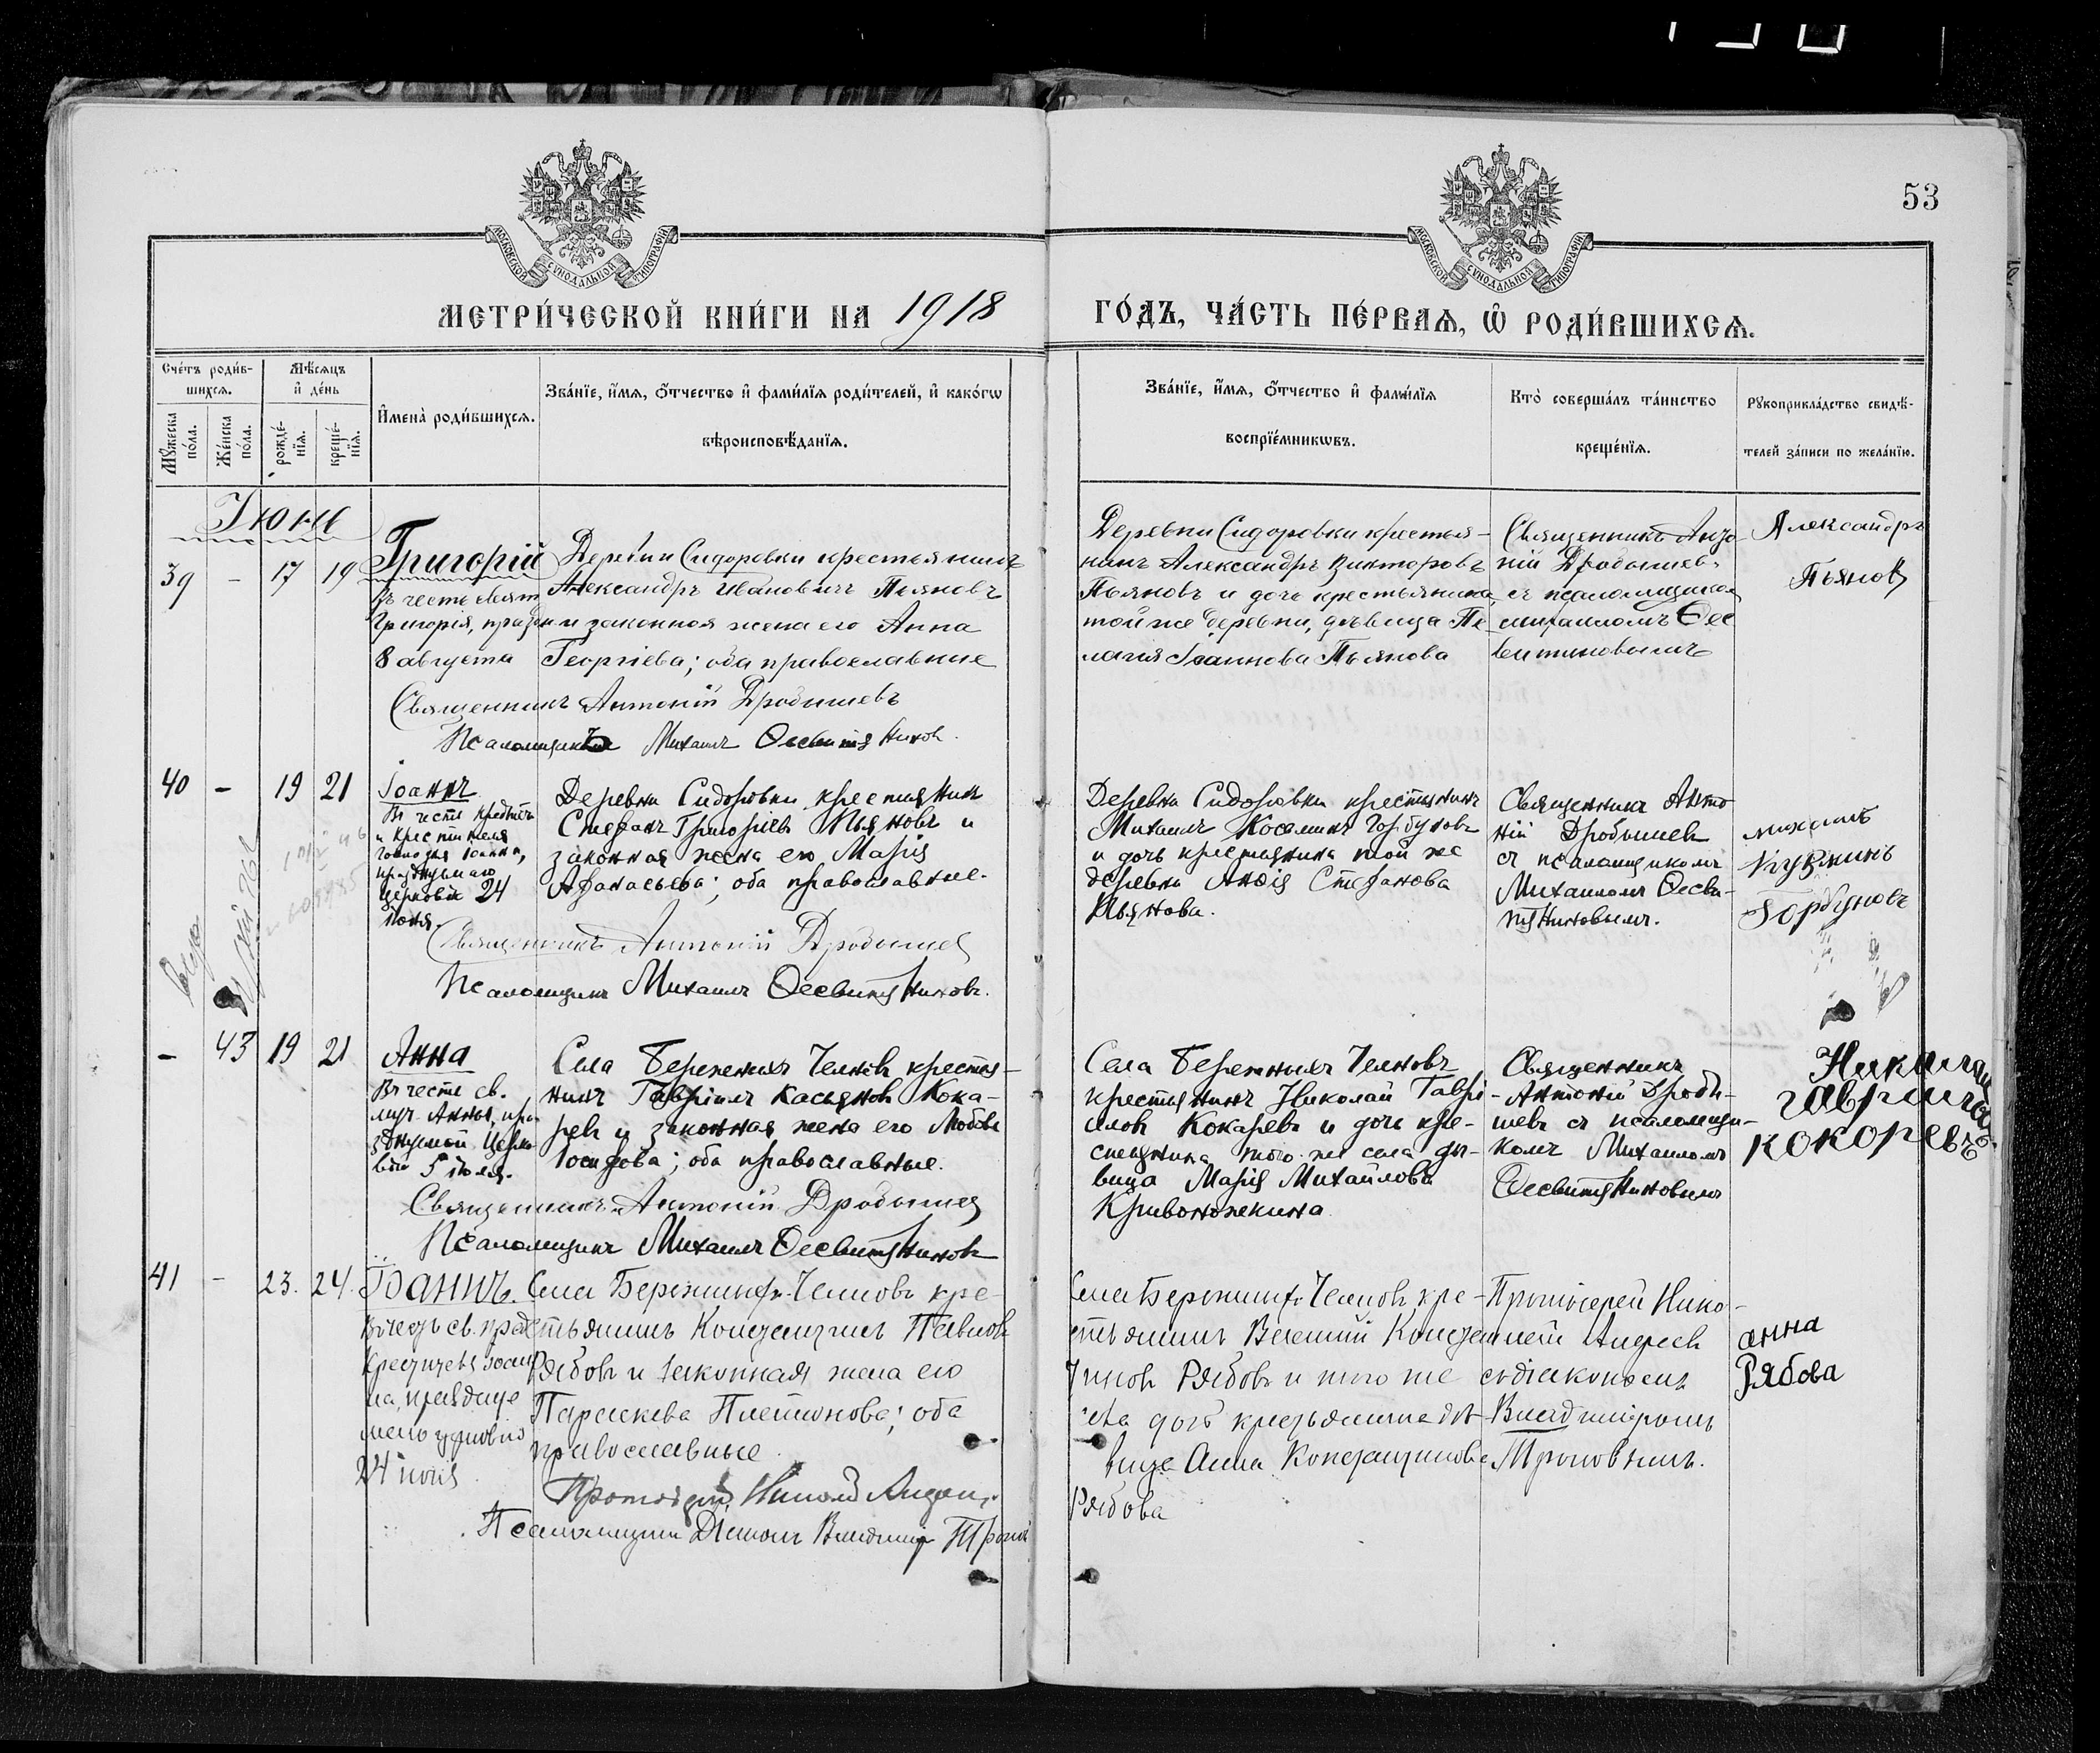 53
МОСКОВСКОЙ СѴНОДАЛЬНОЙ ТИПОГРАФІИ
МОСКОВСКОЙ СѴНОДАЛЬНОЙ ТИПОГРАФІИ
МЕТРИ́ЧЕСКОЙ КНИ́ГИ НА 1918
ГО́ДЪ, ЧА́СТЬ ПЕ́РВАѦ, Ѡ РОДИ́ВШИХСѦ.
Сче́тъ роди́в-
шихсѧ.
Мꙋ́жеска
по́ла.
Же́нска
по́ла.
Мѣ́сѧцъ
и҆ де́нь
рожде́-
нїѧ.
креще́-
нїѧ.
И҆мена̀ роди́вшихсѧ.
Зва́нїе, и҆́мѧ, ѻ҆́тчество и҆ фами́лїѧ роди́телей, и҆ како́гѡ
вѣроисповѣ́данїѧ.
Зва́нїе, и҆́мѧ, ѻ҆́тчество и҆ фами́лїѧ
воспрїе́мникѡвъ.
Кто̀ соверша́лъ та́инство
креще́нїѧ.
Рꙋкоприкла́дство свидѣ́-
телей за́писи по жела́нїю.
Іюнь
39 - 17 19
Григорій
въ честь свят.
Григорія, праздн
8 августа
Деревни Сидоровки крестьянинъ
Александръ Ивановичъ Пьяновъ
и законная жена его Анна
Георгіева; оба православные
Священникъ Антоній Дробышевъ
Псаломщикъ Михаилъ
Деревни Сидоровки крестья-
нинъ Александръ Викторовъ
Пьяновъ и дочь крестьянина
той же деревни, дѣвица Пе-
лагія Іоаннова Пьянова
Священникъ Анто-
ній Дробышев
съ псаломщиком
Михаиломъ Ѳес
Александръ
Пьянов
40 - 19 21
Іоаннъ
Въ честь Предтечи
и Крестителя
Господня Іоанна,
празднуемаго
Церковію 24
іюня.
Деревни Сидоровки крестьянинъ
Стефанъ Григорьевъ Пьяновъ и
законная жена его Марія
Афанасьева; оба православные.
Священникъ Антоній Дробышев
Псаломщикъ Михаилъ
Деревни Сидоровки крестьянинъ
Михаилъ Косьминъ Горбуновъ
и дочь крестьянина той же
деревни Анѳія Стефанова
Пьянова.
Священникъ Анто
ній Дробышев
съ псаломщикомъ
Михаиломъ Ѳесви-
михаилъ
кузминъ
Горбуновъ
- 43 19 21
Анна
Въ честь св.
муч. Анны, пра
зднуемой Церко
вію 5 іюля.
Села Бережныхъ Челновъ крестья-
нинъ Гавріилъ Касьяновъ Кока-
ревъ и законная жена его Любовь
Іосифова; оба православные.
Священникъ Антоній Дробышев
Псаломщикъ Михаилъ
Села Бережныхъ Челновъ
крестьянинъ Николай Гаврі-
иловъ Кокаревъ и дочь кре-
стьянина того-же села дѣ-
вица Марія Михайлова
Кривоножкина
Священникъ
Антоній Дробы-
шевъ съ псаломщи-
комъ Михаиломъ
кокоревъ
41 - 23. 24.
Іоаннъ.
24 іюня
Села Бережныхъ Челновъ кре-
стьянинъ Константинъ Павловъ
Рябовъ и законная жена его
Параскева Платонова; оба
православные.
Села Бережныхъ Челновъ кре-
стьянинъ Василий Констан
тиновъ Рябовъ и того же
села дочь крестьянина дѣ-
вица Анна Константинова
Рябова
Протоіерей Нико-
лай Андреев
съ діакономъ
Владиміромъ
Троновымъ.
анна
Рябова